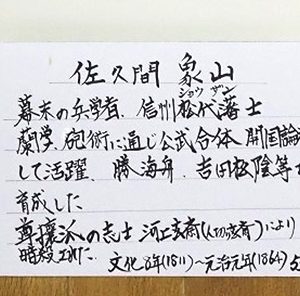 佐久間 象山
ショウ ザン
幕末の兵学者、信州松代藩士
蘭学、砲術に通じ公武合体 開国論
して活躍、勝海舟、吉田松陰等
育成した
尊攘派の志士 河上玄斎(人切玄斎)により
暗殺された 文化8年(1811)~元治元年(1864)